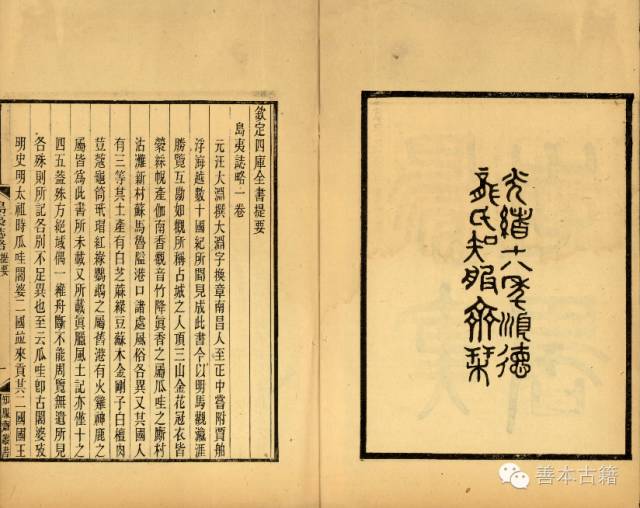 光緒十八年順德
龍氏知服齋栞
欽定四庫全書提要
島夷誌略一卷
元汪大淵撰大淵字煥章南昌人至正中嘗附賈舶
浮海越數十國紀所聞見成此書今以明馬觀瀛涯
勝覽互勘如觀所稱占城之人頂三山金花冠衣皆
縈絲帨產伽南香觀音竹降眞香之屬瓜哇之廝村
沽灘新村蘇馬魯隘港口諸處風俗各異又其國人
有三等其土產有白芝蔴綠豆蘇木金剛子白檀肉
荳蔻龜筒玳瑁紅綠鸚鵡之屬舊港有火雞神鹿之
屬皆爲此書所未載又所載眞臘風土記亦僅十之
四五蓋殊方絕域偶一維舟斷不能周覽無遺所見
各殊則所記各別不足異也至云瓜哇卽古闍婆攷
明史明太祖時瓜哇闍婆二國竝來貢其二國國王
島夷誌略 提要
一
知服齋叢書
善本古籍